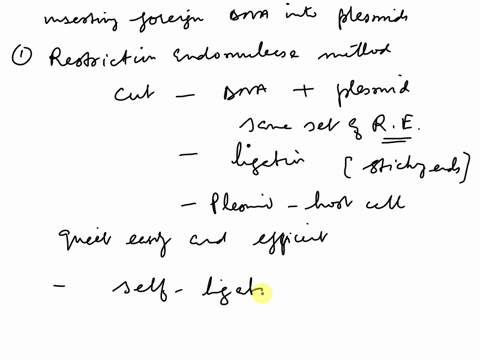 inserting foreign DNA into plasmids
① Restriction Endonuclease method
cut – DNA + plasmid
same set of R.E.
– ligation [sticky ends]
– Plasmid – host cell
Quiet easy and efficient
– self – ligat